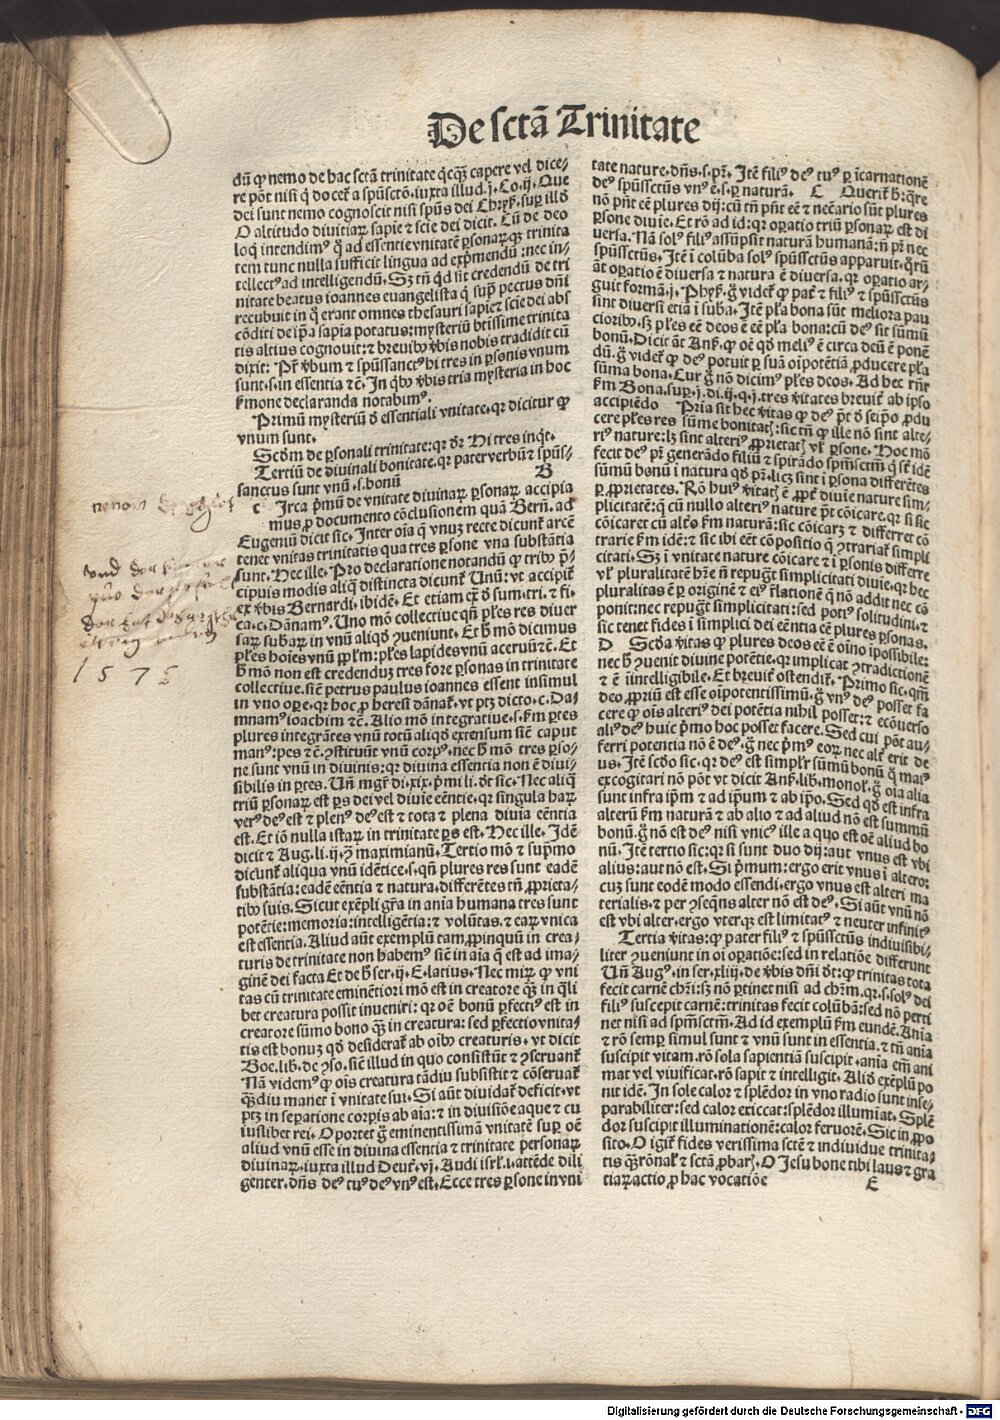 De sctā Trinitate
dū ꝙ nemo de hac sctā trinitate q̄cq̄ȝ capere vel dice⸗
re pōt nisi q̄ docet̄ a spūsctō. iuxta illud .j. Co. ij. Que
dei sunt nemo cognoscit nisi spūs dei Chrys. sup illō
O altitudo divitiaꝝ sapīe ⁊ scīe dei dicit. Cū de deo
loq̄ intendimꝰ q̄ ad essentie vnitatē ꝑsonaꝝqȝ trinita
tem tunc nulla sufficit lingua ad exp̄mendū : nec in⸗
tellectꝰ ad intelligendū. Sȝ tn̄ qd̄ sit credendū de tri
nitate beatus ioannes euangelista q̄ sup̄ pectus dn̄i
recubuit in q̄ erant omnes thesauri sapīe ⁊ scīe dei abs
cōditi de ip̄a sapīa potatus: mysteriū btīssime trinita
tis altius cognouit: ⁊ breuibꝰ v̄bis nobis tradidit cū
dixit: Pr̄ v̄bum ⁊ spūssanctꝰ hi tres in ꝑsonis vnum
sunt. s. in essentia ⁊c̄. In qͥbꝰ v̄bis tria mysteria in hoc
ẜmone declaranda notabimꝰ.
Primū mysteriū ē essentiali vnitate. qꝛ dicitur ꝙ
vnum sunt.
Scd̄m de ꝑsonali trinitate: qꝛ dr̄ Hi tres inqͥt.
Tertiū de diuinali bonitate. qꝛ pater verbū ⁊ spūs⸗
sanctus sunt vnū .s. bonū B
c Irca p̄mū de vnitate diuinaꝝ ꝑsonaꝝ accipia
mus ꝓ documento cōclusionem quā Bern̄. ad
Eugeniū dicit sic. Inter oīa q̄ vnuȝ recte dicunt̄ arcē
tenet vnitas trinitatis qua tres ꝑsone vna substātia
sunt. Hec ille. Pro declaratione notandū ꝙ tribꝰ p̄⸗
cipuis modis aliq̄ distincta dicunt̄ Unū: vt accipit̄
ex v̄bis Bernardi. ibidē. Et etiam ex̄ ō sum. tri. ⁊ fi.
ca. c. Dānamꝰ. Uno mō collectiue qn̄ ples res diuer
saꝝ subaꝝ in vnū aliqd̄ ꝯueniunt. Et h̄ mō dicimus
p̄les hoīes vnū pplm̄: ples lapides vnū aceruū ⁊c̄. Et
h̄ mō non est credenduȝ tres fore ꝑsonas in trinitate
collectiue. sic̄ petrus paulus ioannes essent insimul
in vno ope. qꝛ hoc ꝓ heresi dānat̄. vt ptȝ dicto. c. Da
mnamꝰ ioachim ⁊c̄. Alio mō integratiue .s. ẜm ꝑtes
plures integrātes vnū totū aliqd̄ extensum sic̄ caput
manꝰ: pes ⁊c̄. ꝯstituūt vnū corpꝰ. nec h̄ mō tres ꝑso⸗
ne sunt vnū in diuinis: qꝛ diuina essentia non ē diui⸗
sibilis in ꝑtes. Un̄ mgr̄ di. xix. p̄mi li. dt̄ sic. Nec aliq̄
triū ꝑsonaꝝ est ꝑs dei vel diuīe eēntie. qꝛ singula haꝝ
verꝰ deꝰ est ⁊ plenꝰ deꝰ est ⁊ tota ⁊ plena diuīa eēntia
est. Et iō nulla istaꝝ in trinitate ꝑs est. Hec ille. Idē
dicit ⁊ Aug. li. ij. ꝯ maximianū. Tertio mō ⁊ supmo
dicunt̄ aliqua vnū idētice .s. qn̄ plures res sunt eadē
substātia: eadē eēntia ⁊ natura. differētes tn̄ ꝓprieta⸗
tibꝰ suis. Sicut exēpli gr̄a in anīa humana tres sunt
potētie: memoria: intelligētia: ⁊ volūtas. ⁊ eaꝝ vnica
est essentia. Aliud aūt exemplū tam ꝓpinquū in crea⸗
turis de trinitate non habemꝰ sic̄ in aīa q̄ est ad ima⸗
ginē dei facta Et de h̄ ser. ij. E. latius. Nec miꝝ ꝙ vni
tas cū trinitate eminētiori mō est in creatore q̄ȝ in q̄li
bet creatura possit inueniri: qꝛ oē bonū ꝑfectiꝰ est in
creatore sūmo bono q̄ȝ in creatura: sed ꝑfectio vnita⸗
tis est bonuȝ qd̄ desiderat̄ ab oībꝰ creaturis. vt dicit
Boe. lib. de ꝯso. sic̄ illud in quo consistūt ⁊ ꝯseruant̄
Nā videmꝰ ꝙ oīs creatura tādiu subsistit ⁊ cōseruat̄
q̄ȝdiu manet ī vnitate sui. Si aūt diuidat̄ deficit. vt
ptȝ in sepatione corpis ab aīa: ⁊ in diuisiōe aque ⁊ cu
iuslibet rei. Oportet ḡ eminentissimā vnitatē sup oē
aliud vnū esse in diuina essentia ⁊ trinitate personaꝝ
diuinaꝝ. iuxta illud Deut̄. vj. Audi isrl̄. i. attēde dili
genter. dn̄s deꝰ tuꝰ deꝰ vnꝰ est. Ecce tres ꝑsone in vni
tate nature. dn̄s .s. pr̄. Itē filiꝰ deꝰ tuꝰ ꝑ īcarnationē
deꝰ spūssctūs vnꝰ ē .s. ꝑ naturā. C Querit̄ h̄: q̄re
nō pn̄t eē plures dij: cū tn̄ pn̄t eē ⁊ necēario sūt plures
ꝑsone diuīe. Et rō ad id: qꝛ oꝑatio triū ꝑsonaꝝ est di
uersa. Nā solꝰ filiꝰ assūpsit naturā humanā: n̄ pr̄ nec
spūssctūs. Itē ī colūba solꝰ spūssctūs apparuit. q̄rū
āt oꝑatio ē diuersa ⁊ natura ē diuersa. qꝛ oꝑatio ar⸗
guit formā. j. Phys. ḡ videt̄ ꝙ pat̄ ⁊ filiꝰ ⁊ spūssctūs
sint diuersi etiā ī suba. Itē pla bona sūt meliora pau
ciorībꝰ. sȝ ples eē deos ē eē pla bona: cū deꝰ sit sūmū
bonū. Dicit āt Ans. ꝙ oē qd̄ meliꝰ ē circa deū ē ponē
dū. ḡ videt̄ ꝙ deꝰ potuit ꝑ suā oīpotētiā ꝓducere pla
sūma bona. Cur ḡ nō dicimꝰ ples deos. Ad hec rn̄r
ẜm Bona. sup. j. di. ij. q. j. tres v̄itates breuit̄ ab ipso
accipiēdo Pria sit hec v̄itas ꝙ deꝰ pt̄ ō seipō ꝓdu
cere ples res sūme bonitatȝ: sic tn̄ ꝙ ille nō sint alte⸗
riꝰ nature: lȝ sint alteriꝰ ꝓprietatȝ vl̄ ꝑsone. Hoc mō
fecit deꝰ pr̄ generādo filiū ⁊ spirādo spm̄sctm̄ q̄ sūt idē
sūmū bonū ī natura qd̄ pr̄. licȝ sint ī ꝑsona differētes
ꝑ ꝓprietates. Rō huiꝰ v̄itatȝ ē ꝓpt̄ diuīe nature sim⸗
plicitatē: q̄ cū nullo alteriꝰ nature pt̄ cōicare. qꝛ si sic
cōicaret cū alt̄o ẜm naturā: sic cōicarȝ ⁊ differret cō
trarie ẜm idē: ⁊ sic ibi eēt cōpositio q̄ ꝯtrariat̄ simpli
citati. Sȝ ī vnitate nature cōicare ⁊ ī ꝑsonis differre
vl̄ pluralitatē hr̄e n̄ repugt̄ simplicitati diuīe. qꝛ hec
pluralitas ē ꝑ originē ⁊ eiꝰ r̄lationē q̄ nō addit nec cō
ponit: nec repugt̄ simplicitati: sed potiꝰ solitudini. ⁊
sic tenet fides ī simplici dei eēntia eē plures ꝑsonas.
D Scd̄a v̄itas ꝙ plures deos eē ē oīno īpossibile:
nec h̄ ꝯuenit diuine potētie. qꝛ implicat ꝯtradictionē
⁊ ē īintelligibile. Et breuit̄ ostendit̄. Primo sic. qm̄
deo ꝓpriū est esse oīpotentissimū. ḡ vnꝰ deꝰ posset fa
cere ꝙ oīs alteriꝰ dei potētia nihil posset: ⁊ ecōuerso
aliꝰ deꝰ huic p̄mo hoc posset facere. Sed cui pōt au⸗
ferri potentia nō ē deꝰ. ḡ nec p̄mꝰ eoꝝ nec alt̄ erit de
us. Itē scd̄o sic. qꝛ deꝰ est simplr̄ sūmū bonū q̄ maiꝰ
excogitari nō pōt vt dicit Ans. lib. monol. ḡ oīa alia
sunt infra ip̄m ⁊ ad ip̄um ⁊ ab ip̄o. Sed qd̄ est infra
alterū ẜm naturā ⁊ ab alio ⁊ ad aliud nō est summū
bonū. ḡ nō est deꝰ nisi vnicꝰ ille a quo est oē aliud bo
nū. Itē tertio sic: qꝛ si sunt duo dij: aut vnus est vbi
alius: aut nō est. Si p̄mum: ergo erit vnus ī altero:
cuȝ sunt eodē modo essendi. ergo vnus est alteri ma
terialis. ⁊ per ꝯseq̄ns alter nō est deꝰ. Si aūt vnū nō
est vbi alter. ergo vterqȝ est limitatꝰ ⁊ neuter infinitꝰ
Tertia v̄itas: ꝙ pater filiꝰ ⁊ spūssctūs indiuisibi⸗
liter ꝯueniunt in oī oꝑatiōe: sed in relatiōe differunt
Un̄ Augꝰ. in ser. xliij. de v̄bis dn̄i dt̄: ꝙ trinitas tota
fecit carnē chr̄i: sȝ nō ꝑtinet nisi ad chr̄m. qꝛ .s. solꝰ dei
filiꝰ suscepit carnē: trinitas fecit colūbā: sed nō perti
net nisi ad spm̄sctm̄. Ad id exemplū ẜm eundē. Anīa
⁊ rō semp simul sunt ⁊ vnū sunt in essentia. ⁊ tn̄ anīa
suscipit vitam. rō sola sapientiā suscipit. anīa em̄ ani
mat vel viuificat. rō sapit ⁊ intelligit. Aliō exēplū po
nit idē. In sole calor ⁊ splēdor in vno radio sunt inse⸗
parabiliter: sed calor exiccat: splēdor illumīat. Splē
dor suscipit illuminationē: calor feruorē. Sic in ꝓpo
sito. O igit̄ fides verissima sctē ⁊ indiuidue trinita⸗
tis q̄ȝ rōnat̄ ⁊ sctā ꝓbarȝ. O Jesu bone tibi laus ⁊ gra
tiaꝝ actio ꝓ hac vocatiōe E
1575
Digitalisierung gefördert durch die Deutsche Forschungsgemeinschaft - DFG